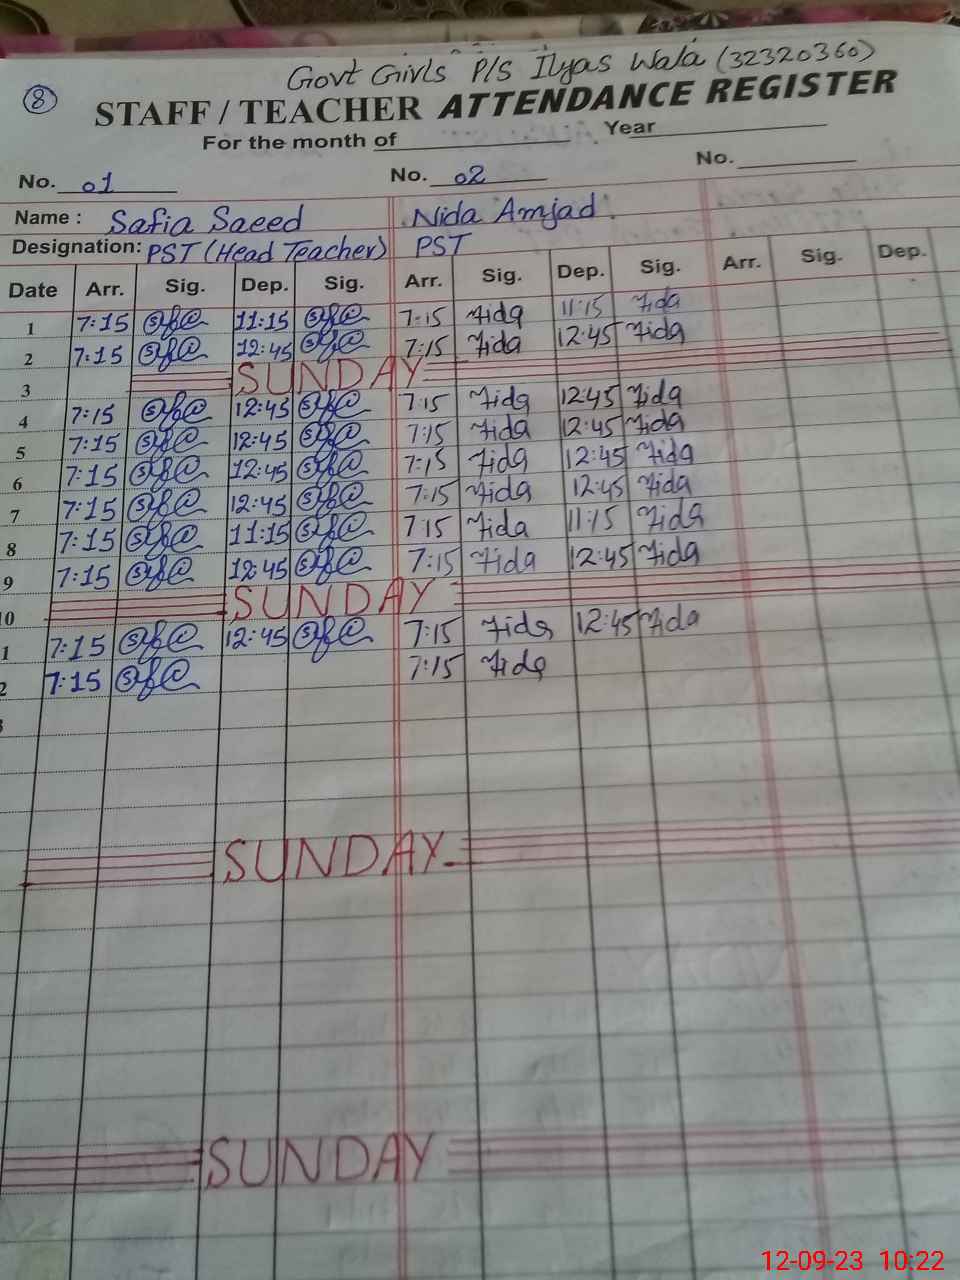 Govt Girls P/S Ilyas Wala (32320360)
8
STAFF / TEACHER ATTENDANCE REGISTER
For the month of Year
No. 01 No. 02 No.
Name : Safia Saeed Nida Amjad
Designation: PST (Head Teacher) PST
Date Arr. Sig. Dep. Sig. Arr. Sig. Dep. Sig. Arr. Sig. Dep.
1 7:15 11:15 7:15 Nida 11:15 Nida
2 7:15 12:45 7:15 Nida 12:45 Nida
3 SUNDAY
4 7:15 12:45 7:15 Nida 12:45 Nida
5 7:15 12:45 7:15 Nida 12:45 Nida
6 7:15 12:45 7:15 Nida 12:45 Nida
7 7:15 12:45 7:15 Nida 12:45 Nida
8 7:15 11:15 7:15 Nida 11:15 Nida
9 7:15 12:45 7:15 Nida 12:45 Nida
10 SUNDAY
1 7:15 12:45 7:15 Nida 12:45 Nida
2 7:15 7:15 Nida
SUNDAY
SUNDAY
12-09-23 10:22